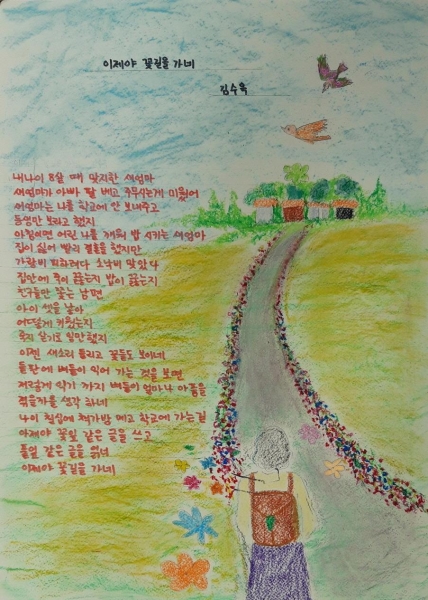 이제야 꽃길을 가네
김수옥
내나이 8살 때 맞이한 새엄마
새엄마가 아빠 팔 베고 주무시는게 미웠어
새엄마는 나를 학교에 안 보내주고
동생만 보라고 했지
아침이면 어린 나를 깨워 밥 시키는 새엄마
집이 싫어 빨리 결혼을 했지만
가랑비 피하려다 소낙비 맞았다
집안에 죽이 끓는지 밥이 끓는지
친구들만 쫓는 남편
아이 셋을 낳아
어떻게 키웠는지
죽기 살기로 일만했지
이젠 새소리 들리고 꽃들도 보이네
들판에 벼들이 익어 가는 것을 보면
저렇게 익기 까지 벼들이 얼마나 아픔을
겪을까를 생각 하네
나이 칠십에 책가방 메고 학교에 가는길
이제야 꽃잎 같은 글을 쓰고
풀잎 같은 글을 읽네
이제야 꽃길을 가네